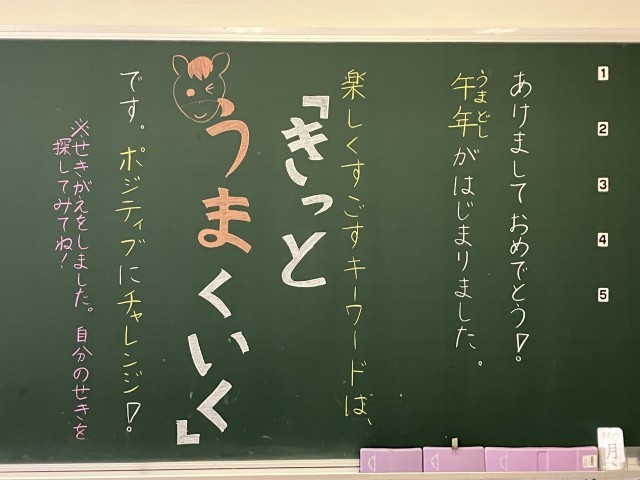 1
2
3
4
5
あけましておめでとう!
午年がはじまりました。
うまどし
楽しくすごすキーワードは、
『きっと
うまくいく』
です。ポジティブにチャレンジ!
※せきがえをしました。自分のせきを
探してみてね!
月